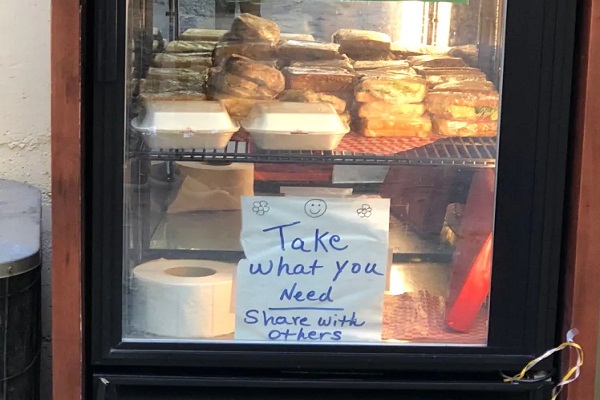 Take
what you
Need
Share with
others